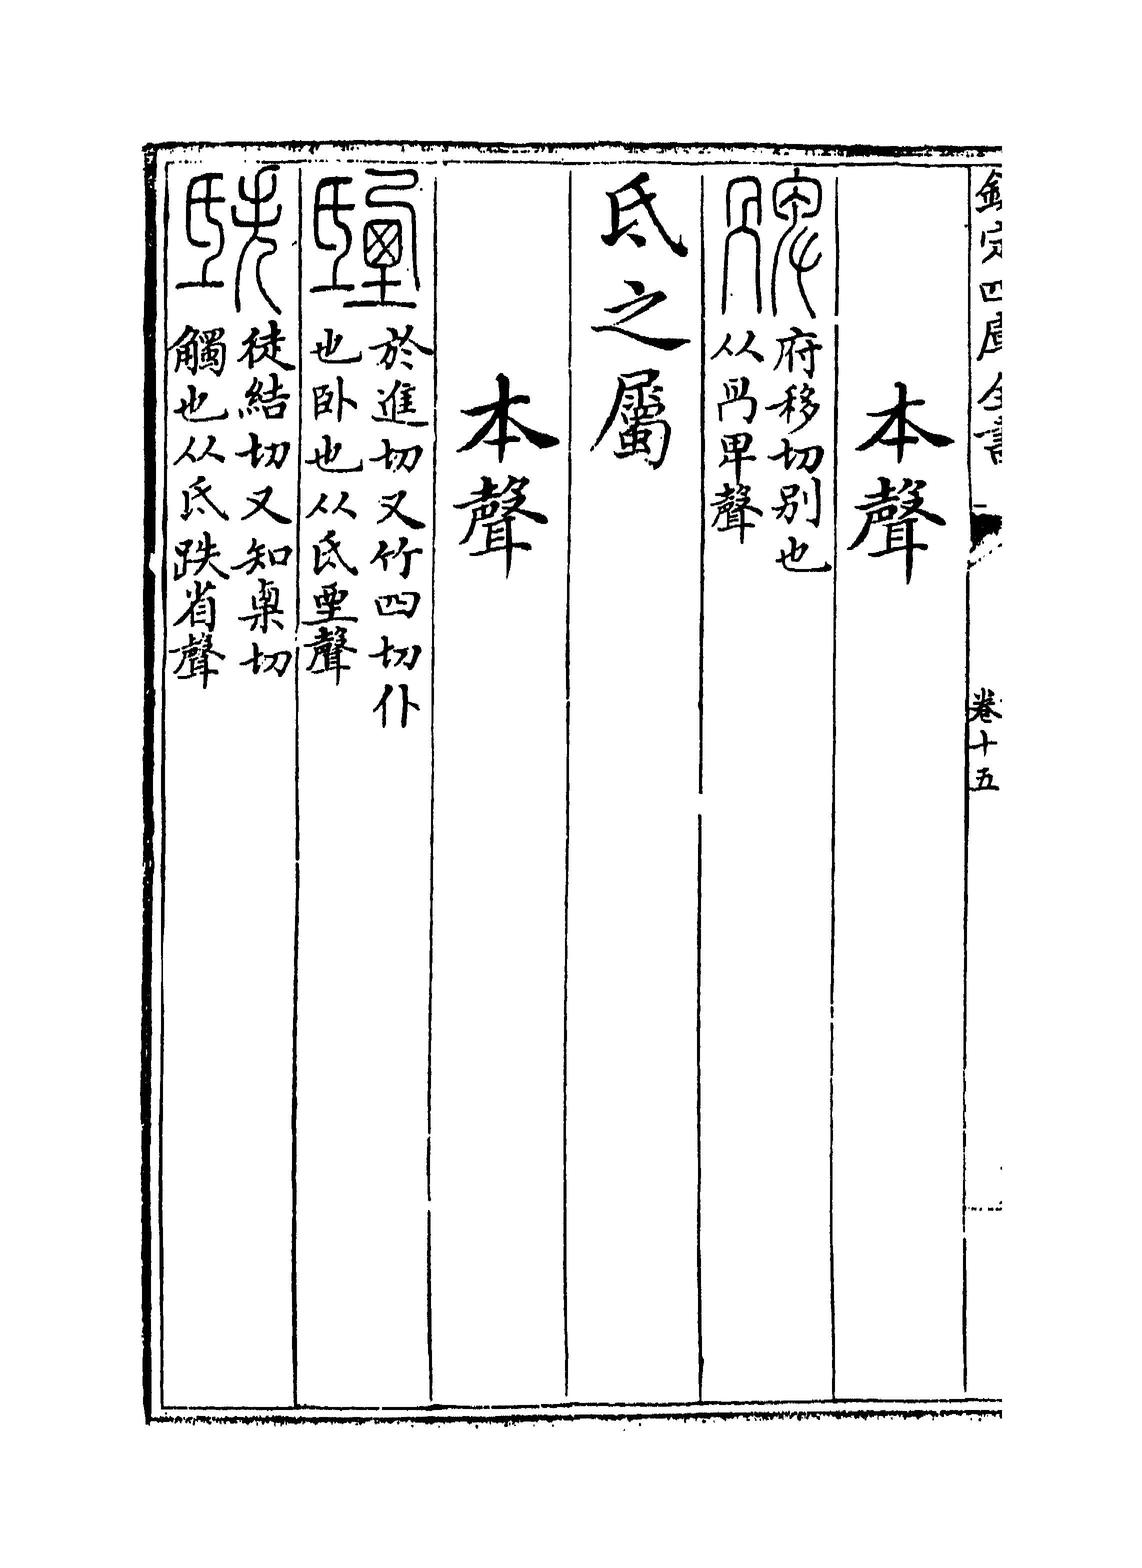 欽定四庫全書
卷十五
本聲
府移切别也
从冎卑聲
氐之屬
本聲
於進切又竹四切仆
也卧也从氐垔聲
徒結切又知㮚切
觸也从氐跌省聲